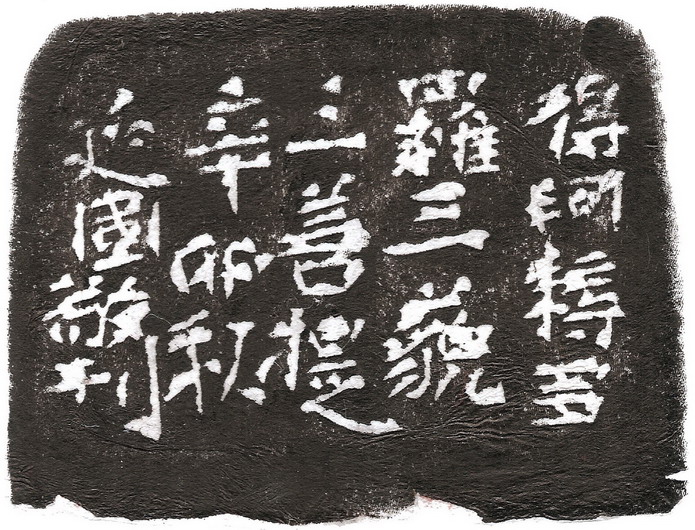 得阿耨多
羅三藐
三菩提
辛卯秋
國敬